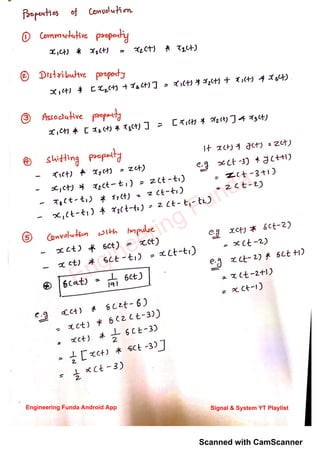 Properties of Convolution
① Commutative property
x₁(t) * x₂(t) = x₂(t) * x₁(t)
② Distributive property
x₁(t) * [x₂(t) + x₃(t)] = x₁(t) * x₂(t) + x₁(t) * x₃(t)
③ Associative property
x₁(t) * [x₂(t) * x₃(t)] = [x₁(t) * x₂(t)] * x₃(t)
④ Shifting property
- x₁(t) * x₂(t) = z(t)
- x₁(t) * x₂(t-t₁) = z(t-t₁)
- x₁(t-t₁) * x₂(t) = z(t-t₁)
- x₁(t-t₁) * x₂(t-t₂) = z(t-t₁-t₂)
If x(t) * y(t) = z(t)
e.g x(t-3) * y(t+1)
= z(t-3+1)
= z(t-2)
⑤ Convolution with Impulse
- x(t) * δ(t) = x(t)
- x(t) * δ(t-t₁) = x(t-t₁)
⊛ δ(at) = 1/|a| δ(t)
e.g x(t) * δ(t-2)
= x(t-2)
e.g x(t-2) * δ(t+1)
= x(t-2+1)
= x(t-1)
e.g x(t) * δ(2t-6)
= x(t) * δ(2(t-3))
= x(t) * 1/2 δ(t-3)
= 1/2 [x(t) * δ(t-3)]
= 1/2 x(t-3)
Engineering Funda Android App
Signal & System YT Playlist
Scanned with CamScanner